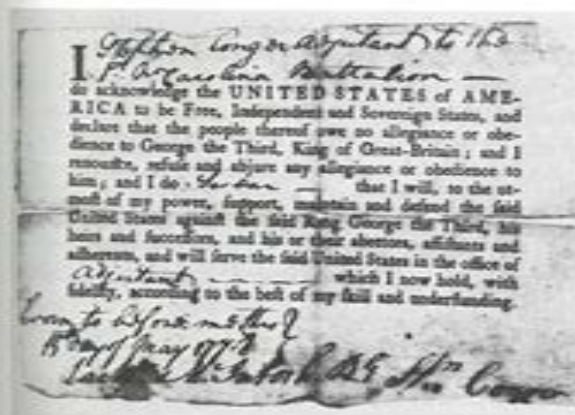 I Stephen Conger Adjutant to the
1st No Carolina Battalion —
do acknowledge the UNITED STATES of AME-
RICA to be Free, Independent and Sovereign States, and
declare that the people thereof owe no allegiance or obe-
dience to George the Third, King of Great-Britain; and I
renounce, refuse and abjure any allegiance or obedience to
him; and I do Swear — that I will, to the ut-
most of my power, support, maintain and defend the said
United States against the said King George the Third, his
heirs and successors, and his or their abettors, assistants and
adherents, and will serve the said United States in the office of
Adjutant — which I now hold, with
fidelity, according to the best of my skill and understanding.
Sworn to before me this
May 1778